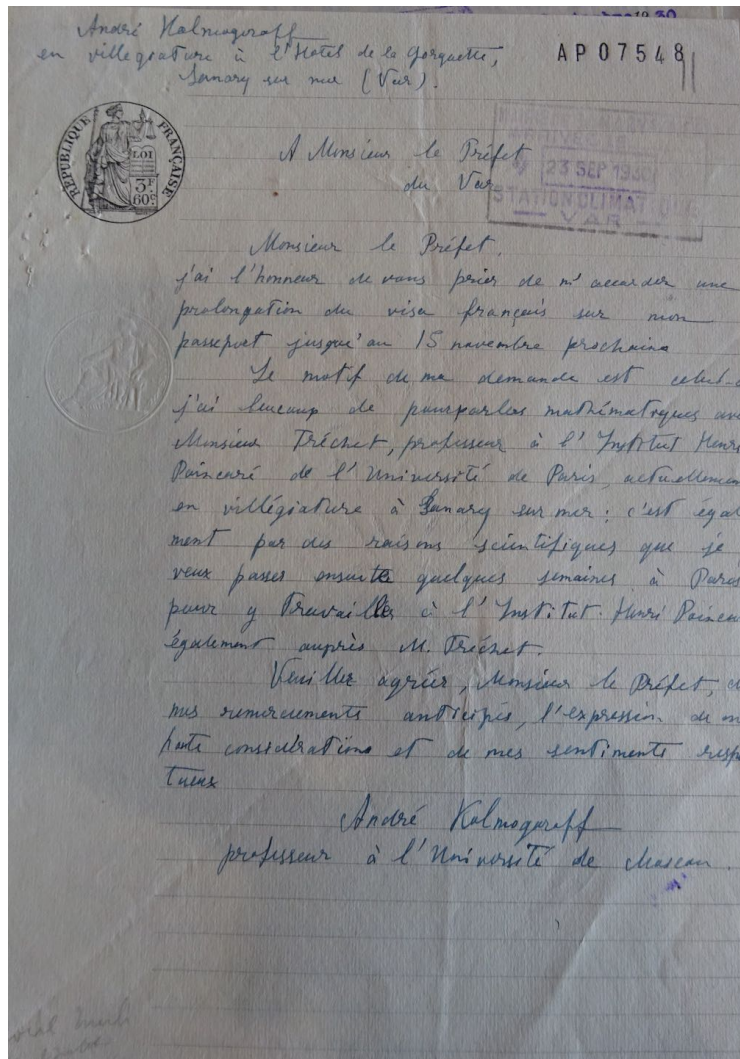 1930
André Kolmogoroff
en villégiature à l'Hotel de la Gorguette,
Sanary sur mer (Var).
AP07548
RÉPUBLIQUE FRANÇAISE
LOI
3F
60c
A Monsieur le Préfet
du Var
23 SEP 1930
STATION CLIMATIQUE
VAR
Monsieur le Préfet,
j'ai l'honneur de vous prier de m'accorder une
prolongation du visa français sur mon
passeport jusqu'au 15 novembre prochain.
Le motif de ma demande est celui-c
j'ai beucoup de pourparles mathématiques ave
Monsieur Fréchet, professeur à l'Institut Henri
Poincaré de l'Université de Paris, actuellemen
en villégiature à Sanary sur mer; c'est égal
ment par des raisons scientifiques que je
veux passer ensuite quelques semaines à Paris
pour y travailler à l'Institut Henri Poincar
également auprès M. Fréchet.
Veuillez agréer, Monsieur le Préfet,
mes remerciements anticipés, l'expression de m
haute considération et de mes sentiments respe
tueux
André Kolmogoroff
professeur à l'Université de Moscou.